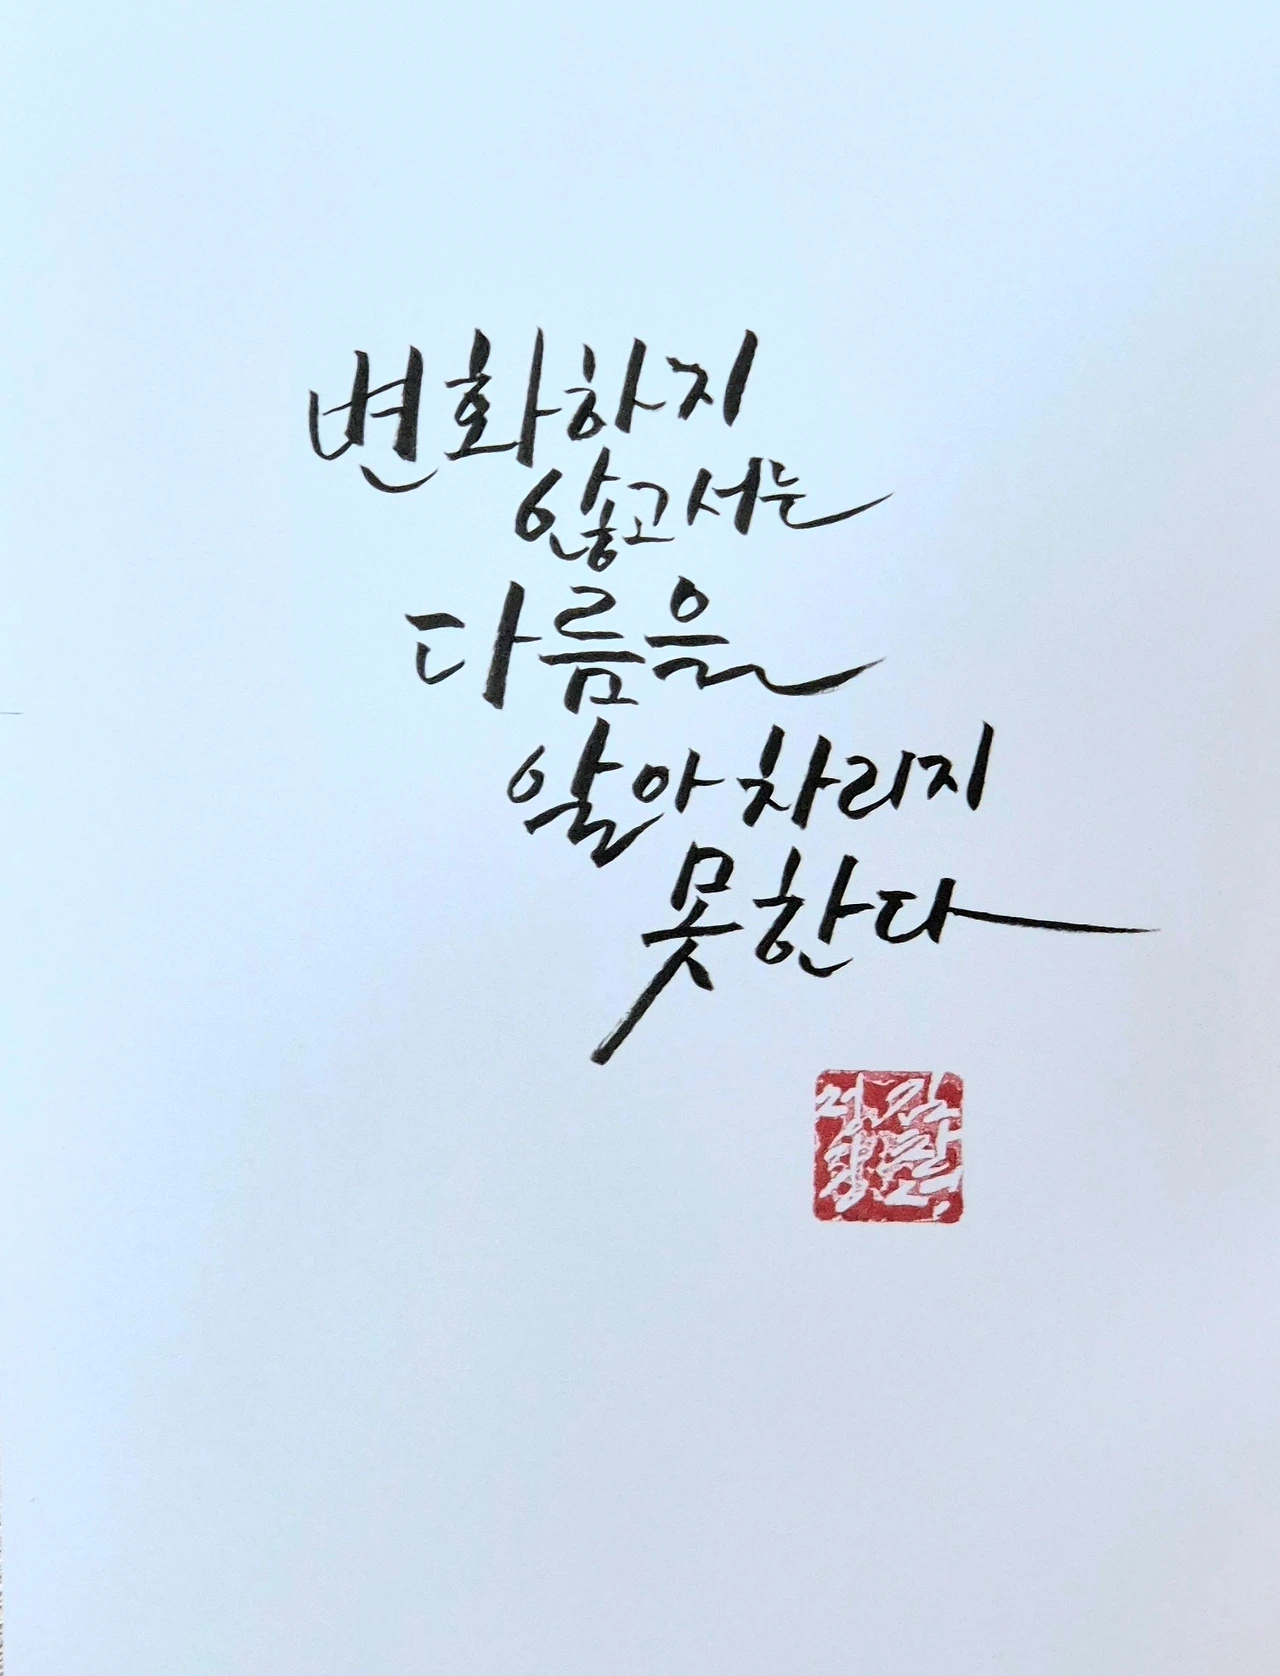 변화하지
않고서는
다름을
알아차리지
못한다